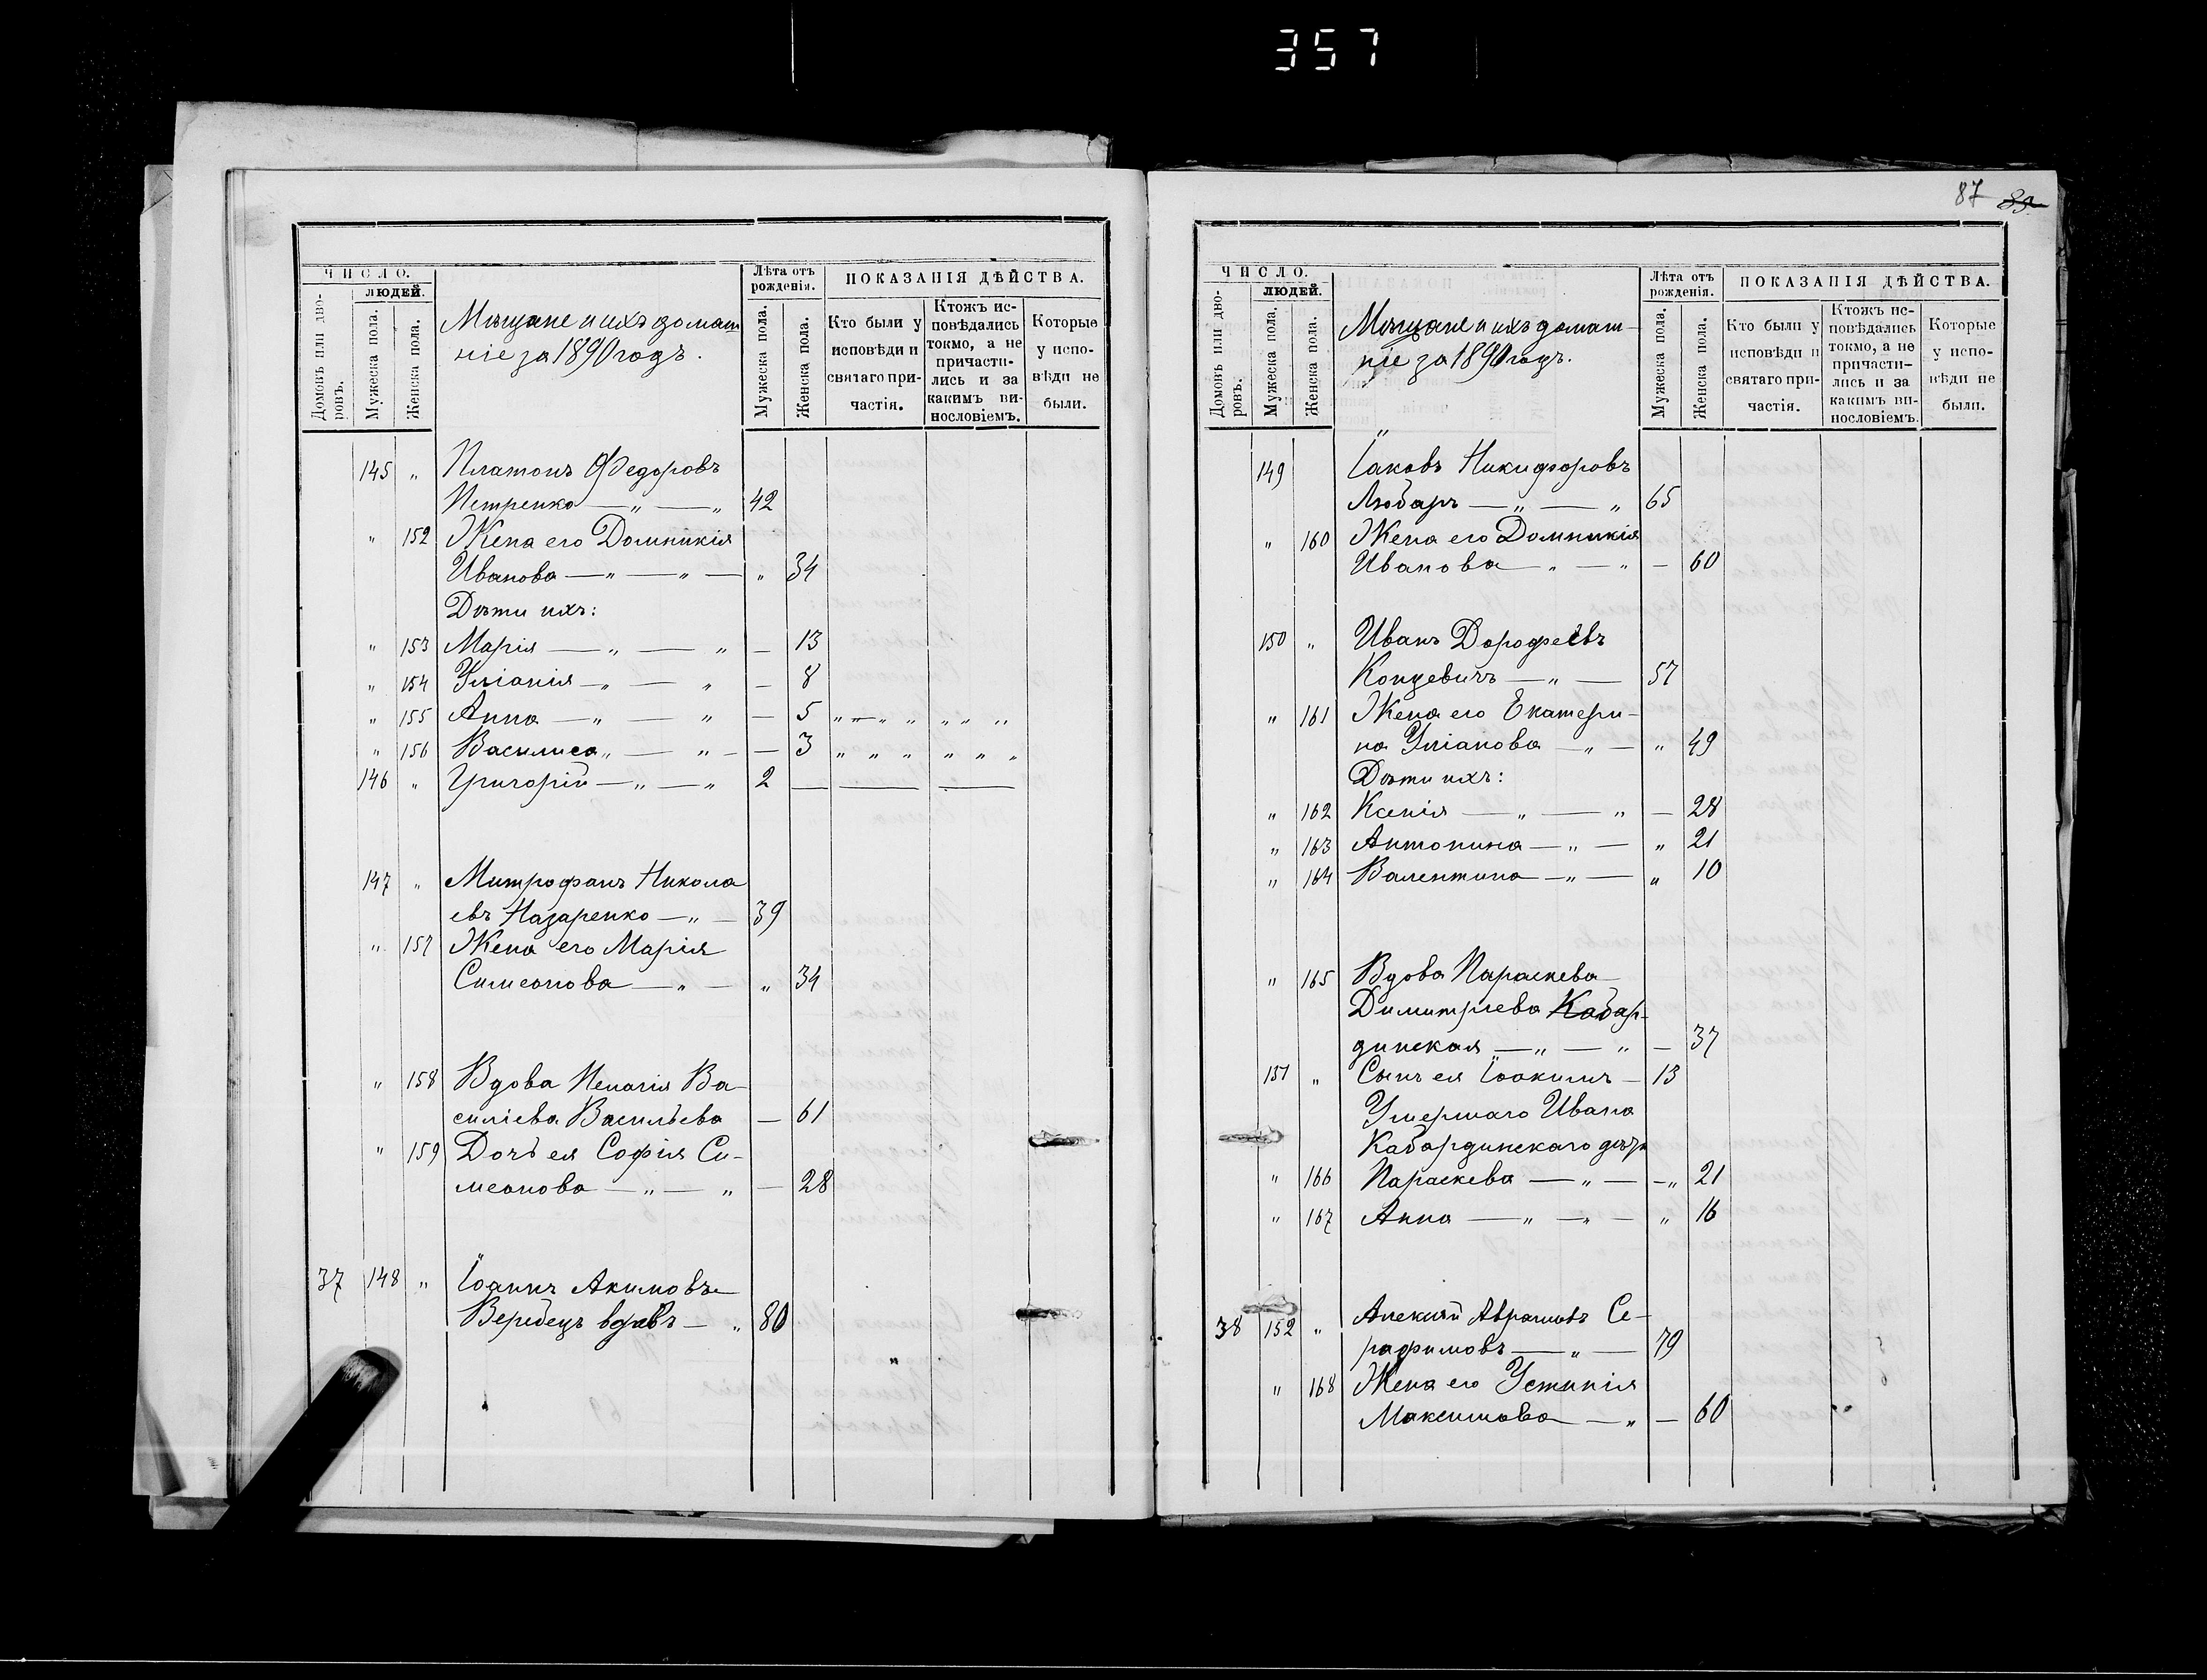 357
ЧИСЛО.
ЛЮДЕЙ.
Домовъ или дворовъ.
Мужеска пола.
Женска пола.
Мѣщане и ихъ домаш
ніе за 1890 годъ.
Лѣта отъ рожденія.
Мужеска пола.
Женска пола.
ПОКАЗАНІЯ ДѢЙСТВА.
Кто были у исповѣди и святаго причастія.
Ктожъ исповѣдались токмо, а не причастились и за какимъ винословіемъ.
Которые у исповѣди не были.
145 „ Платонъ Ѳедоровъ
Петренко — „ — „ 42
„ 152 Жена его Домникія
Иванова — „ — „ — „ 34
Дѣти ихъ:
„ 153 Марія — „ — „ — 13
„ 154 Уліанія — „ — „ — 8
„ 155 Анна — „ — „ — 5 „ — „ „ „ „ „
„ 156 Василиса „ — „ — — 3 „ „ „ „ „ „
146 „ Григорій — „ — „ 2 — — —
147 „ Митрофанъ Никола
евъ Назаренко — „ — 39
„ 157 Жена его Марія
Симеонова — „ — „ 34
„ 158 Вдова Пелагія Ва-
силіева Васильева — 61
„ 159 Дочь ея Софія Си-
меонова — „ — „ — 28
37 148 „ Іоаннъ Акимовъ
Вербецъ вдовъ — „ 80
87
ЧИСЛО.
ЛЮДЕЙ.
Домовъ или дворовъ.
Мужеска пола.
Женска пола.
Мѣщане и ихъ домаш-
ніе за 1890 годъ.
Лѣта отъ рожденія.
Мужеска пола.
Женска пола.
ПОКАЗАНІЯ ДѢЙСТВА.
Кто были у исповѣди и святаго причастія.
Ктожъ исповѣдались токмо, а не причастились и за какимъ винословіемъ.
Которые у исповѣди не были.
149 Іаковъ Никифоровъ
Любаръ — „ — „ 65
„ 160 Жена его Домникія
Иванова — „ — „ — 60
150 „ Иванъ Дорофеевъ
Концевичъ — „ — 57
„ 161 Жена его Екатери-
на Уліанова — „ — „ 49
Дѣти ихъ:
„ 162 Ксенія — „ — „ — 28
„ 163 Антонина — „ — „ 21
„ 164 Валентина — „ — „ 10
„ 165 Вдова Параскева
Димитріева Кабар-
динская — „ — „ — 37
151 „ Сынъ ея Іоакимъ — 13
Умершаго Ивана
Кабардинскаго дѣти
„ 166 Параскева — „ — — „ 21
„ 167 Анна — „ — „ — „ 16
38 152 „ Алексій Аврамовъ Се-
рафимовъ — „ — 79
„ 168 Жена его Устинія
Максимова — „ — 60